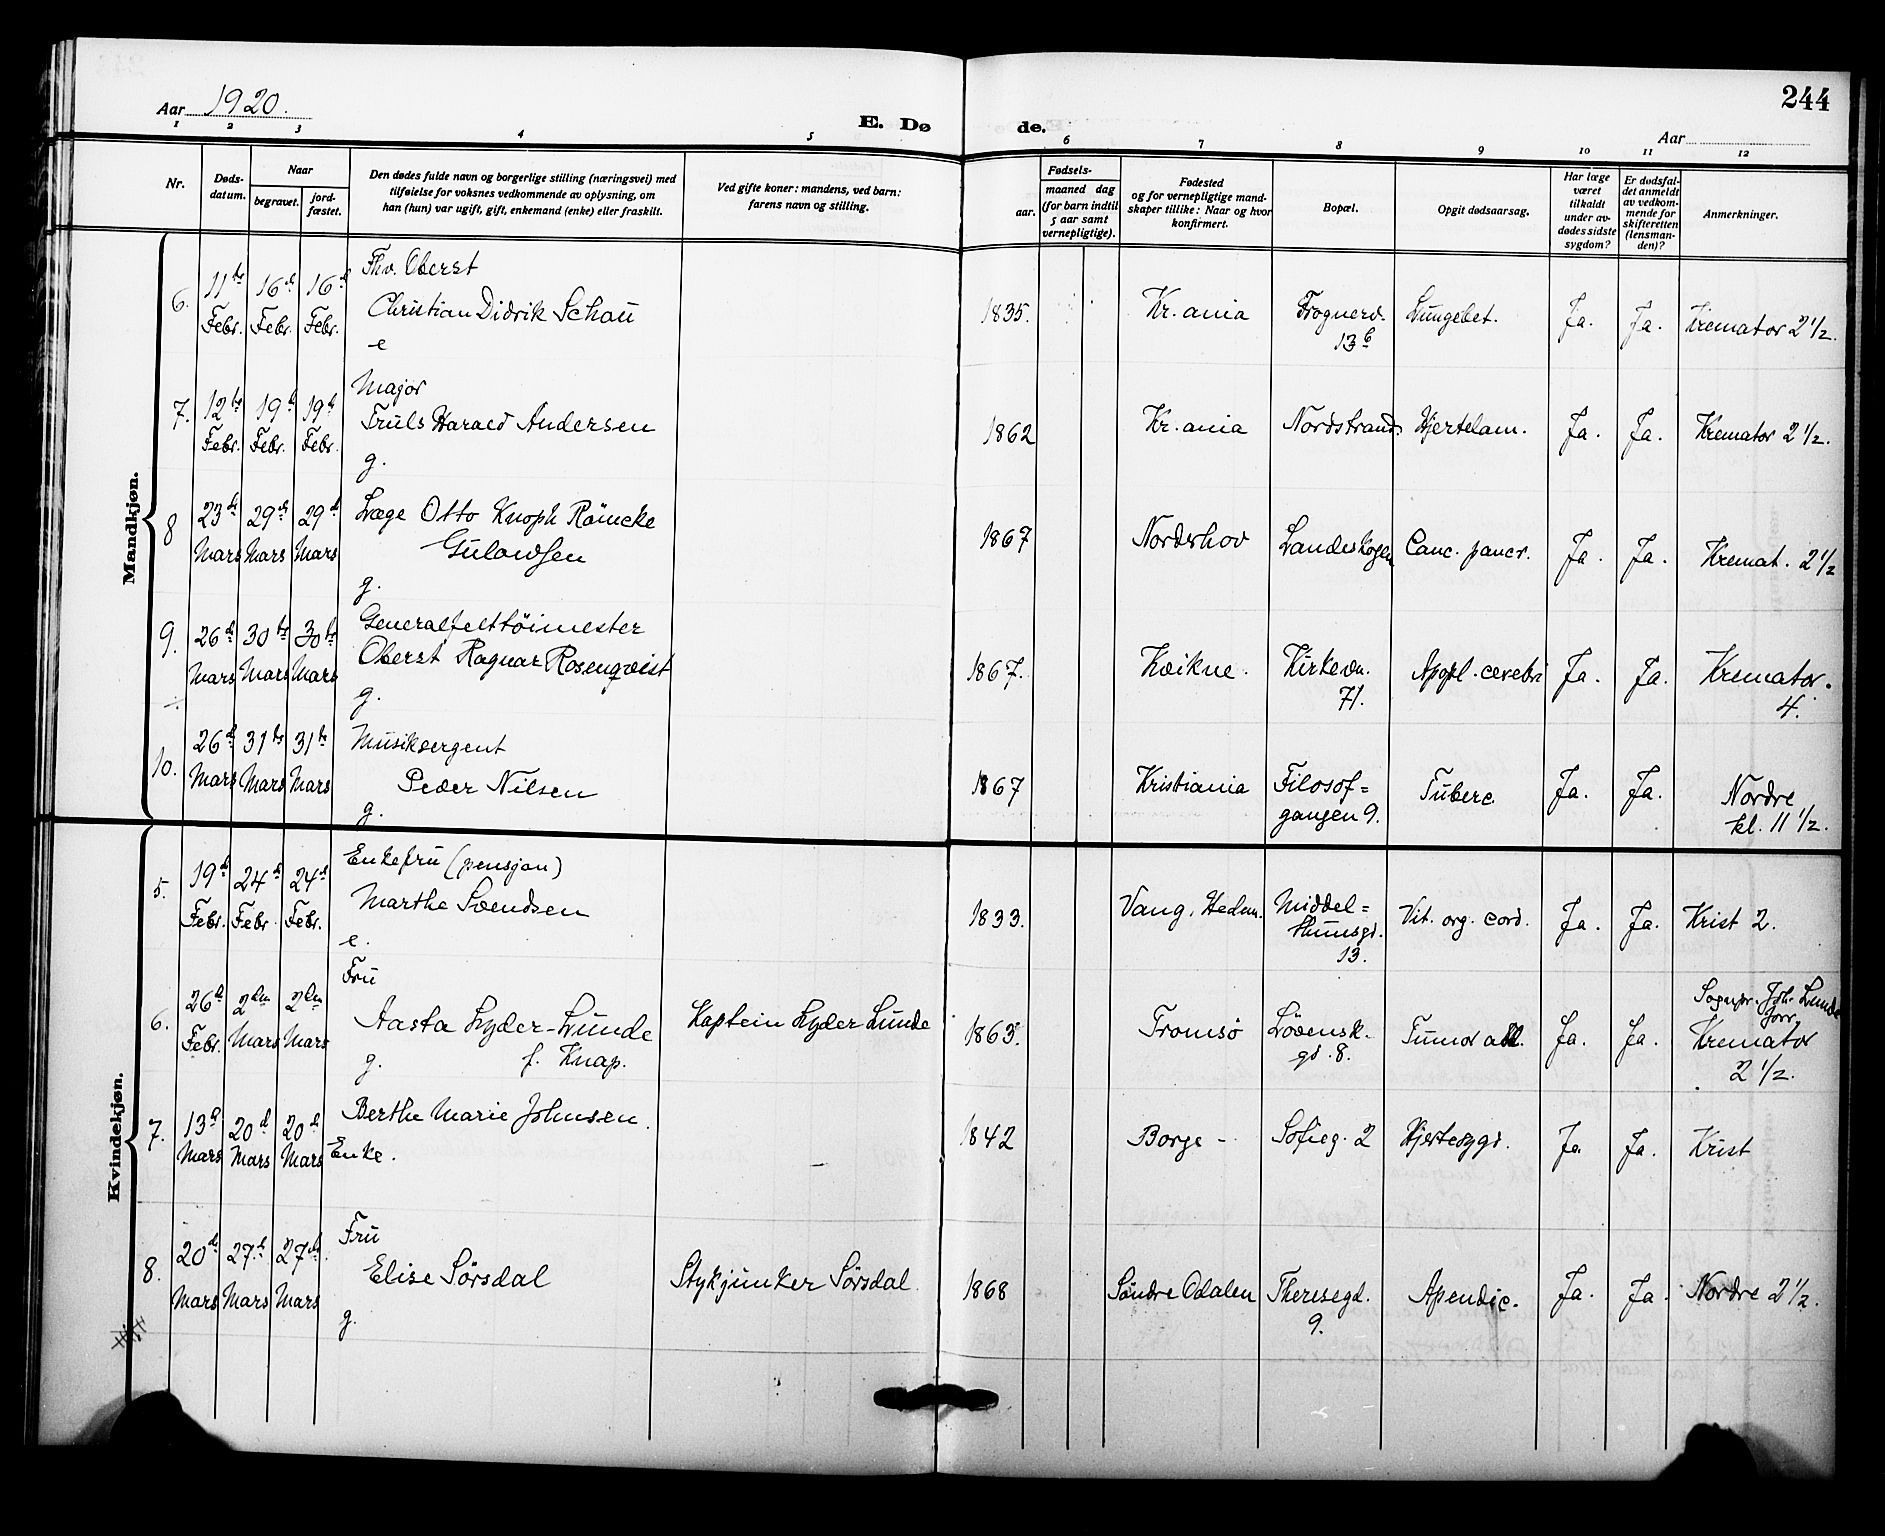 Aar 1920.
E. Døde.
244
Aar
1 2 3 4 5 6 7 8 9 10 11 12
Nr.
Døds-
datum.
Naar
begravet.
jord-
fæstet.
Den dødes fulde navn og borgerlige stilling (næringsvei) med
tilføielse for voksnes vedkommende av oplysning, om
han (hun) var ugift, gift, enkemand (enke) eller fraskilt.
Ved gifte koner: mandens, ved barn:
farens navn og stilling.
Fødsels-
aar.
maaned dag
(for barn indtil
5 aar samt
vernepligtige).
Fødested
og for vernepligtige mand-
skaper tillike: Naar og hvor
konfirmert.
Bopæl.
Opgit dødsaarsag.
Har læge
været
tilkaldt
under av-
dødes sidste
sygdom?
Er dødsfal-
det anmeldt
av vedkom-
mende for
skifteretten
(lensman-
den)?
Anmerkninger.
Mandkjøn.
6. 11te Febr. 16d Febr. 16d Febr.
Fhv. Oberst
Christian Didrik Schou
e
1835. Kr.ania Frognerv. 13b Lungebet. Ja. Ja. Kremator 2 1/2.
7. 12te Febr. 19d Febr. 19d Febr.
Major
Truls Harald Andersen
g.
1862 Kr.ania Nordstrand. Hjertelam. Ja. Ja. Kremator 2 1/2.
8 23de Mars 29d Mars 29d Mars
Læge Otto Knoph Römcke
Gulowsen
g.
1867 Norderhov Landeskogen Canc. pancr. Ja. Ja. Kremat. 2 1/2
9. 26d Mars 30te Mars 30te Mars
Generalfelttöimester
Oberst Ragnar Rosenqvist
g.
1867. Kvikne. Kirkevn. 71. Apopl. cerebri Ja. Ja. Kremator. 4.
10. 26d Mars 31te Mars 31te Mars
Musiksergent
Peder Nilsen
g.
1867 Kristiania Filosof=
gangen 9. Tuberc. Ja. Ja. Nordre
kl. 11 1/2.
Kvindekjøn.
5. 19d Febr. 24d Febr. 24d Febr.
Enkefru (pensjon)
Marthe Svendsen
e.
1833. Vang, Hedm. Middel=
thunsgd.
13. Vit. org. cord. Ja. Ja. Krist 2.
6. 26d Febr. 2den Mars 2den Mars
Fru
Aasta Lyder-Lunde
g. f. Knap.
Kaptein Lyder Lunde
1863. Tromsö Lövensk.
gd. 8. Tumor Ja. Ja. Sognepr. Joh. Lunde
forr.
Kremator
2 1/2.
7. 13d Mars 20d Mars 20d Mars
Berthe Marie Johnsen.
Enke.
1842 Borge - Sofieg. 2 Hjertesygd. Ja. Ja. Krist
8. 20de Mars 27d Mars 27de Mars
Fru
Elise Sörsdal
g.
Stykjunker Sörsdal.
1868 Söndre Odalen Theresegd.
9. Apendic. Ja. Ja. Nordre 2 1/2.